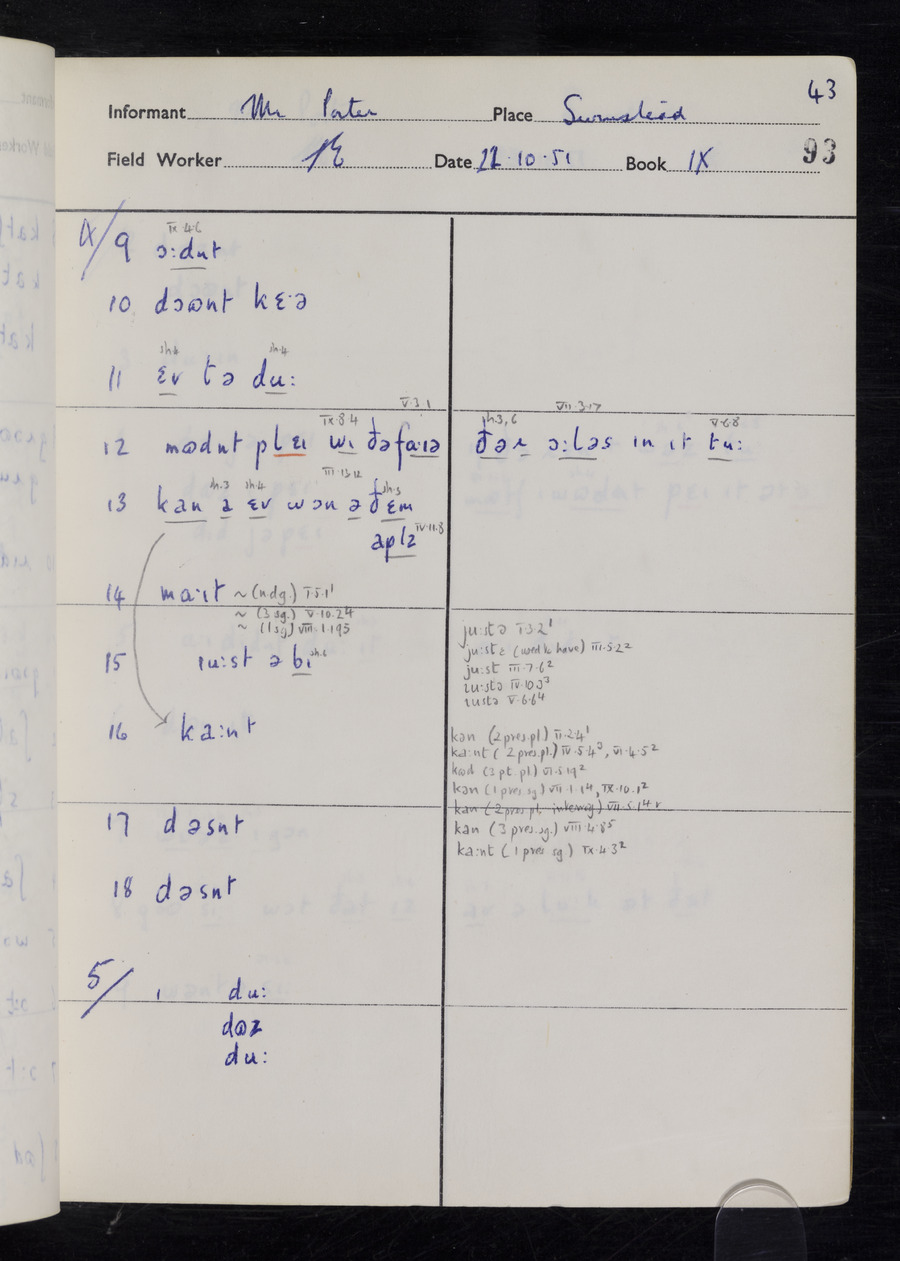 43
Informant Mr Porter Place Swinstead
Field Worker Date 22.10.51 Book IX 93
IX.4.6
4/ 9 ɔ:dnt
10 dɔɷnt kɛ·ə
sh.4 sh.4
11 ɛv tə du:
IX.8.4 V.3.1 sh3,6 VII.3.17 V.6.8
12 mɷdnt plɛɪ wɪ ðəfa:ɪə ðəɹ ɔ:ləs ɪn ɪt tu:
sh.3 sh.4 III.13.12 sh.5
13 kan ə ɛv wɔn ə ðɛm
aplz IV.11.8
14 ma:ɪt ~ (ndg.) I.5.1¹
~ (3 sg.) V.10.2⁴
~ (1 sg) VIII.1.19⁵
15 ɪu:st ə bɪ sh.6
ju:stə I.3.2¹
ju:stɛ (used to have) III.5.2²
ju:st III.7.6²
ɪu:stə IV.10.3³
ɪustə V.6.6⁴
16 ka:nt
kan (2 pres.pl) II.2.4¹
ka:nt (2 pres.pl.) IV.5.4³, VI.4.5²
kɷd (3 pt. pl.) VI.5.19²
kan (1 pres sg) VII.1.1⁴, IX.10.1²
kan (2 pres. pl. interrog) VII.5.1⁴
kan (3 pres.sg.) VIII.4.8⁵
ka:nt (1 pres sg.) IX.4.3²
17 dəsnt
18 dəsnt
5/ 1 du:
dɷz
du: